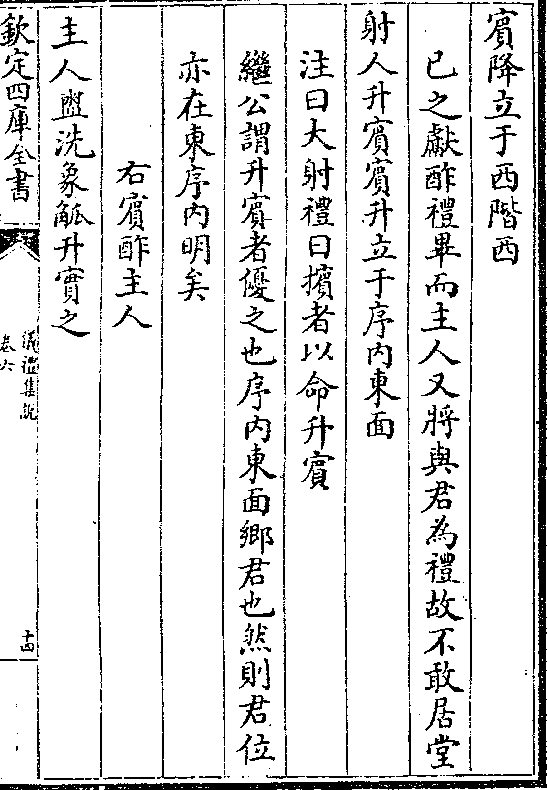 賔降立于西階西
已之獻酢禮畢而主人又將與君為禮故不敢居堂
射人升賔賔升立于序内東面
注曰大射禮曰擯者以命升賔
繼公謂升賔者優之也序内東面鄉君也然則君位
亦在東序内明矣
右賔酢主人
主人盥洗象觚升實之
欽定四庫全書
儀禮集說
卷六
十四